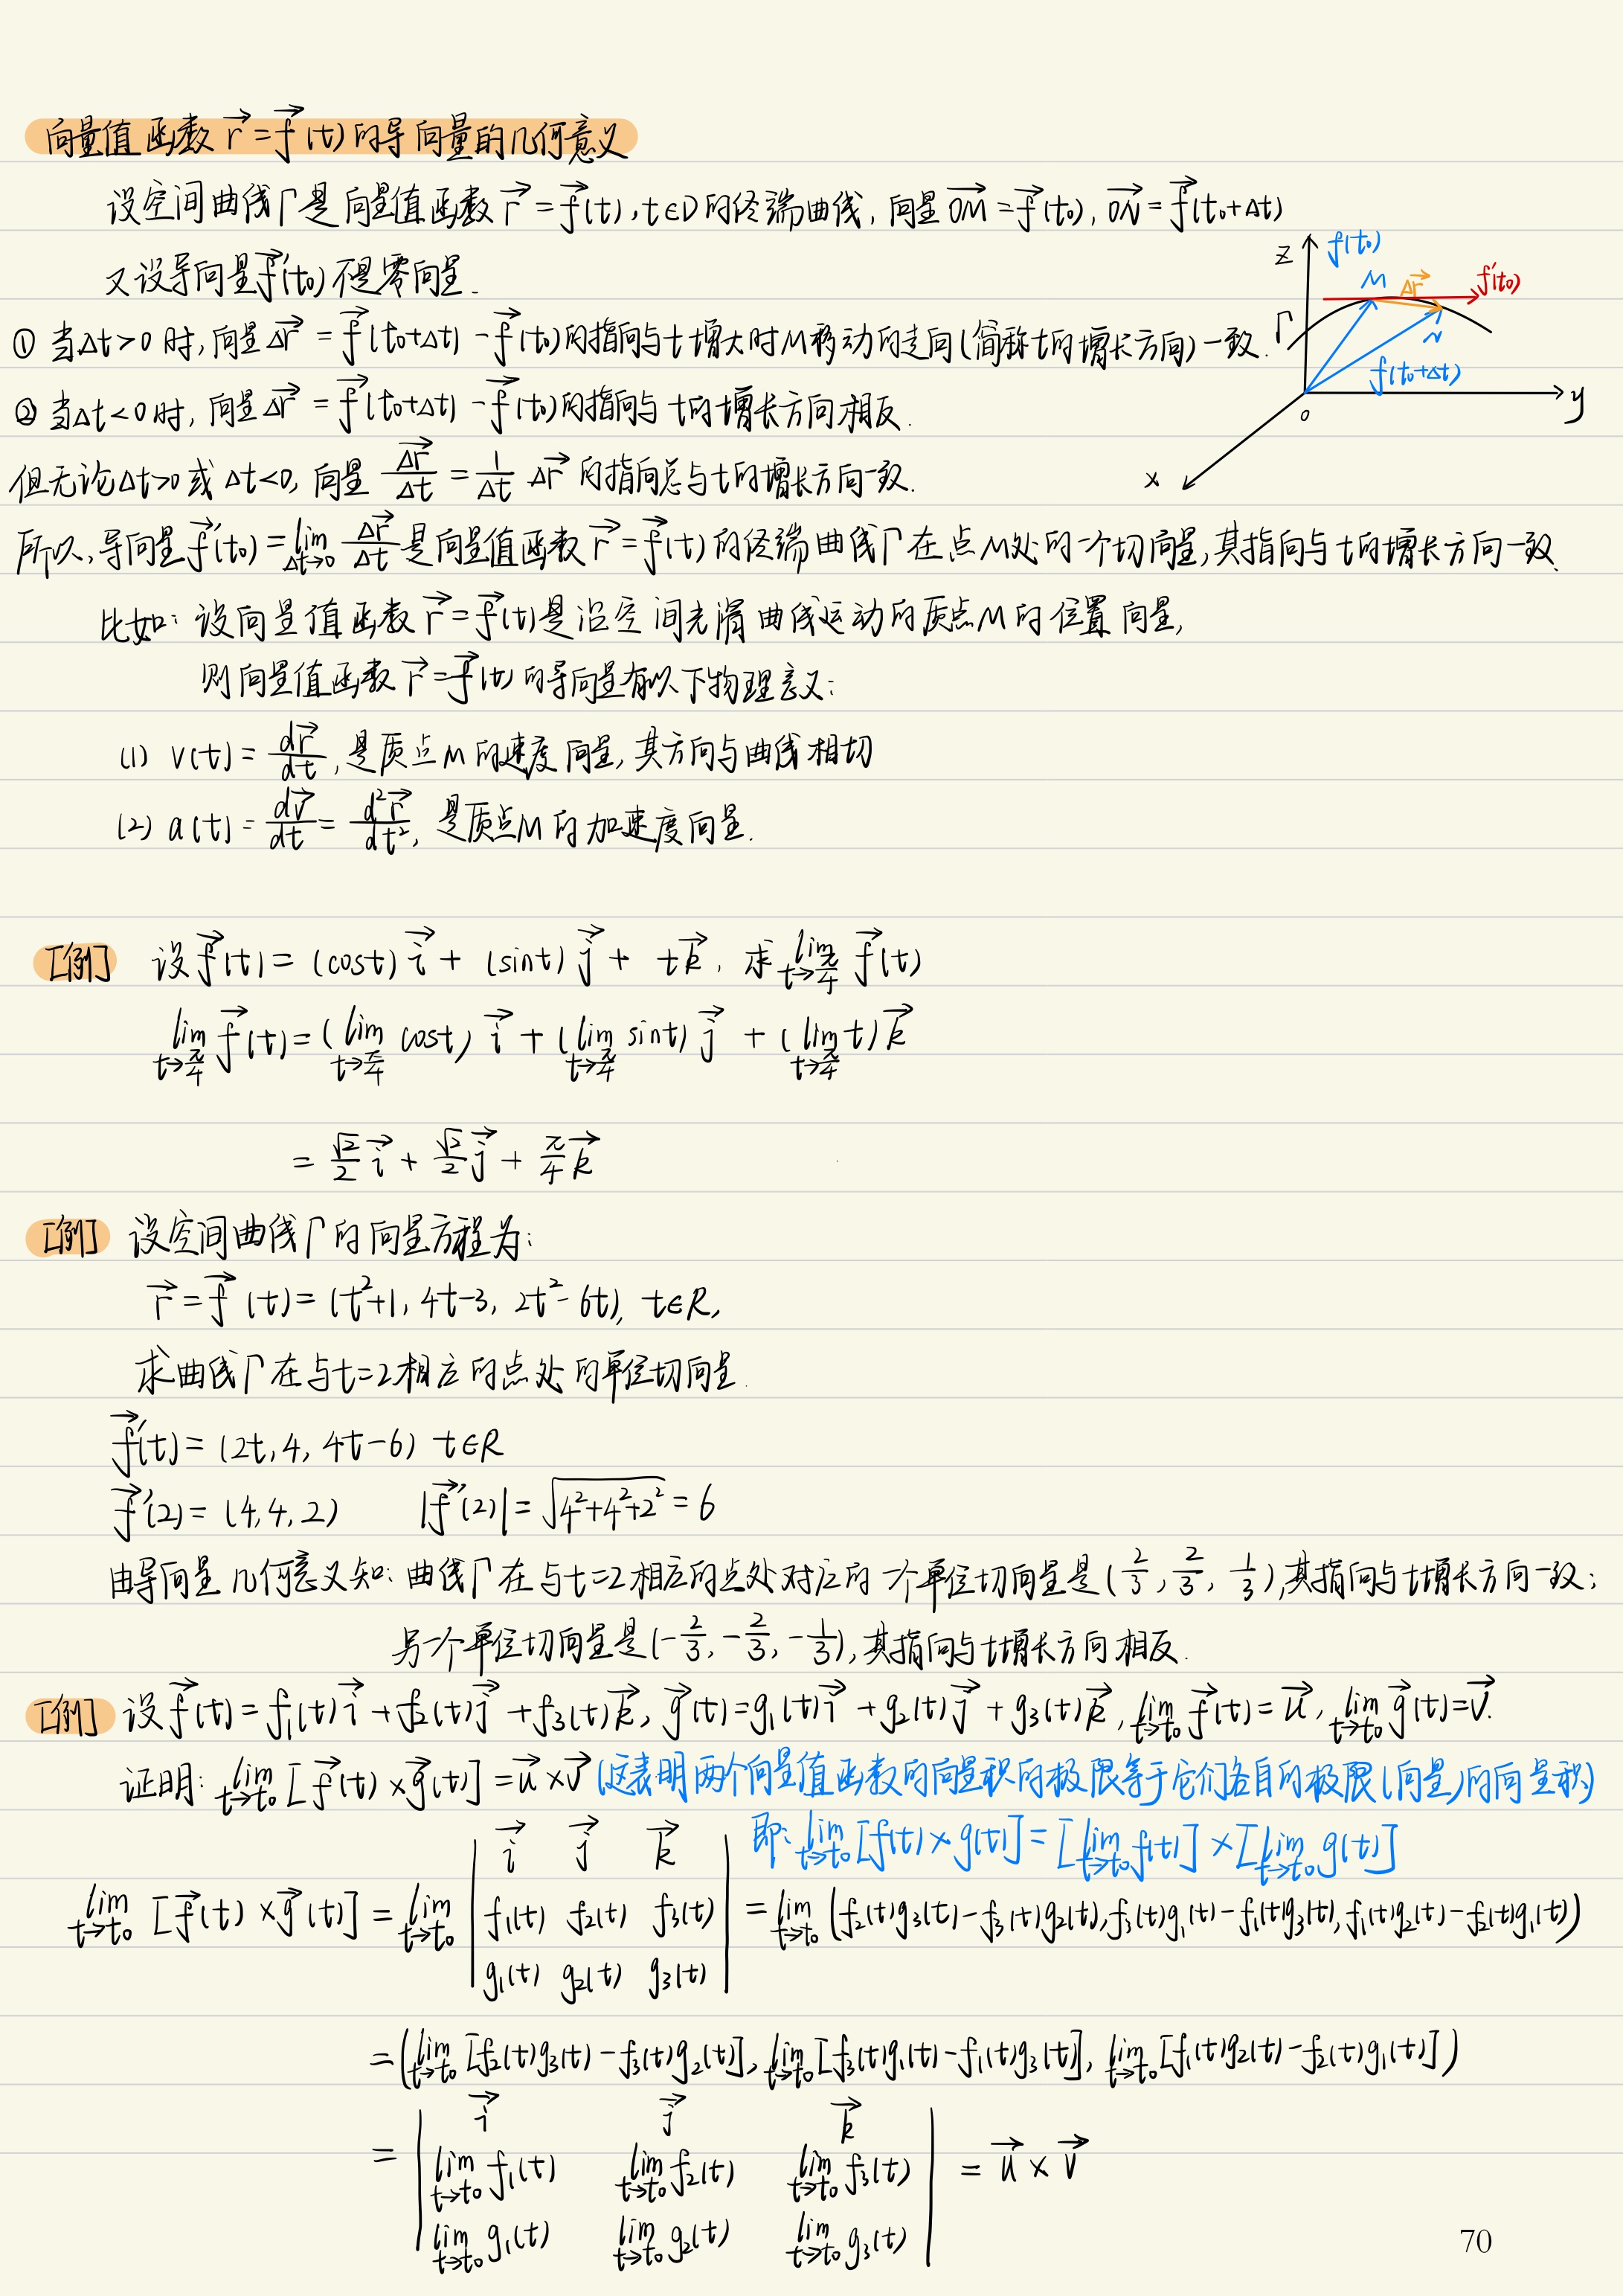 向量值函数 r⃗ = f⃗(t) 的导向量的几何意义
设空间曲线Γ是向量值函数 r⃗ = f⃗(t), t∈D的终端曲线, 向量 OM⃗ = f⃗(t₀), ON⃗ = f⃗(t₀+Δt)
又设导向量 f⃗'(t₀) 不是零向量.
z f(t₀)
M Δr⃗ f'(t₀)
Γ
N
f(t₀+Δt)
o y
x
① 当Δt>0 时, 向量 Δr⃗ = f⃗(t₀+Δt) - f⃗(t₀) 的指向与t增大时M移动的走向(简称t的增长方向)一致.
② 当Δt<0时, 向量 Δr⃗ = f⃗(t₀+Δt) - f⃗(t₀) 的指向与 t的增长方向相反.
但无论Δt>0 或 Δt<0, 向量 Δr⃗/Δt = 1/Δt Δr⃗ 的指向总与t的增长方向一致.
所以, 导向量 f⃗'(t₀) = lim_{Δt→0} Δr⃗/Δt 是向量值函数 r⃗ = f⃗(t) 的终端曲线Γ在点M处的一个切向量, 其指向与t的增长方向一致.
比如: 设向量值函数 r⃗ = f⃗(t) 是沿空间光滑曲线运动的质点M的位置向量,
则向量值函数 r⃗ = f⃗(t) 的导向量有以下物理意义:
(1) v(t) = dr⃗/dt, 是质点M的速度向量, 其方向与曲线相切
(2) a(t) = dv⃗/dt = d²r⃗/dt², 是质点M的加速度向量.
[例] 设 f⃗(t) = (cost) i⃗ + (sint) j⃗ + t k⃗, 求 lim_{t→π/4} f⃗(t)
lim_{t→π/4} f⃗(t) = (lim_{t→π/4} cost) i⃗ + (lim_{t→π/4} sint) j⃗ + (lim_{t→π/4} t) k⃗
= √2/2 i⃗ + √2/2 j⃗ + π/4 k⃗
[例] 设空间曲线Γ的向量方程为:
r⃗ = f⃗(t) = (t²+1, 4t-3, 2t²-6t), t∈R,
求曲线Γ在与t=2相应的点处的单位切向量.
f⃗'(t) = (2t, 4, 4t-6) t∈R
f⃗'(2) = (4, 4, 2) |f⃗'(2)| = √(4²+4²+2²) = 6
由导向量几何意义知: 曲线Γ在与t=2相应的点处对应的一个单位切向量是 (2/3, 2/3, 1/3), 其指向与t增长方向一致;
另一个单位切向量是 (-2/3, -2/3, -1/3), 其指向与t增长方向相反.
[例] 设 f⃗(t) = f₁(t) i⃗ + f₂(t) j⃗ + f₃(t) k⃗, g⃗(t) = g₁(t) i⃗ + g₂(t) j⃗ + g₃(t) k⃗, lim_{t→t₀} f⃗(t) = u⃗, lim_{t→t₀} g⃗(t) = v⃗.
证明: lim_{t→t₀} [f⃗(t) × g⃗(t)] = u⃗ × v⃗ (这表明两个向量值函数的向量积的极限等于它们各自的极限(向量)的向量积)
即: lim_{t→t₀} [f(t) × g(t)] = [lim_{t→t₀} f(t)] × [lim_{t→t₀} g(t)]
lim_{t→t₀} [f⃗(t) × g⃗(t)] = lim_{t→t₀} | i⃗ j⃗ k⃗ ; f₁(t) f₂(t) f₃(t) ; g₁(t) g₂(t) g₃(t) | = lim_{t→t₀} (f₂(t)g₃(t) - f₃(t)g₂(t), f₃(t)g₁(t) - f₁(t)g₃(t), f₁(t)g₂(t) - f₂(t)g₁(t))
= (lim_{t→t₀} [f₂(t)g₃(t) - f₃(t)g₂(t)], lim_{t→t₀} [f₃(t)g₁(t) - f₁(t)g₃(t)], lim_{t→t₀} [f₁(t)g₂(t) - f₂(t)g₁(t)])
= | i⃗ j⃗ k⃗ ; lim_{t→t₀} f₁(t) lim_{t→t₀} f₂(t) lim_{t→t₀} f₃(t) ; lim_{t→t₀} g₁(t) lim_{t→t₀} g₂(t) lim_{t→t₀} g₃(t) | = u⃗ × v⃗
70